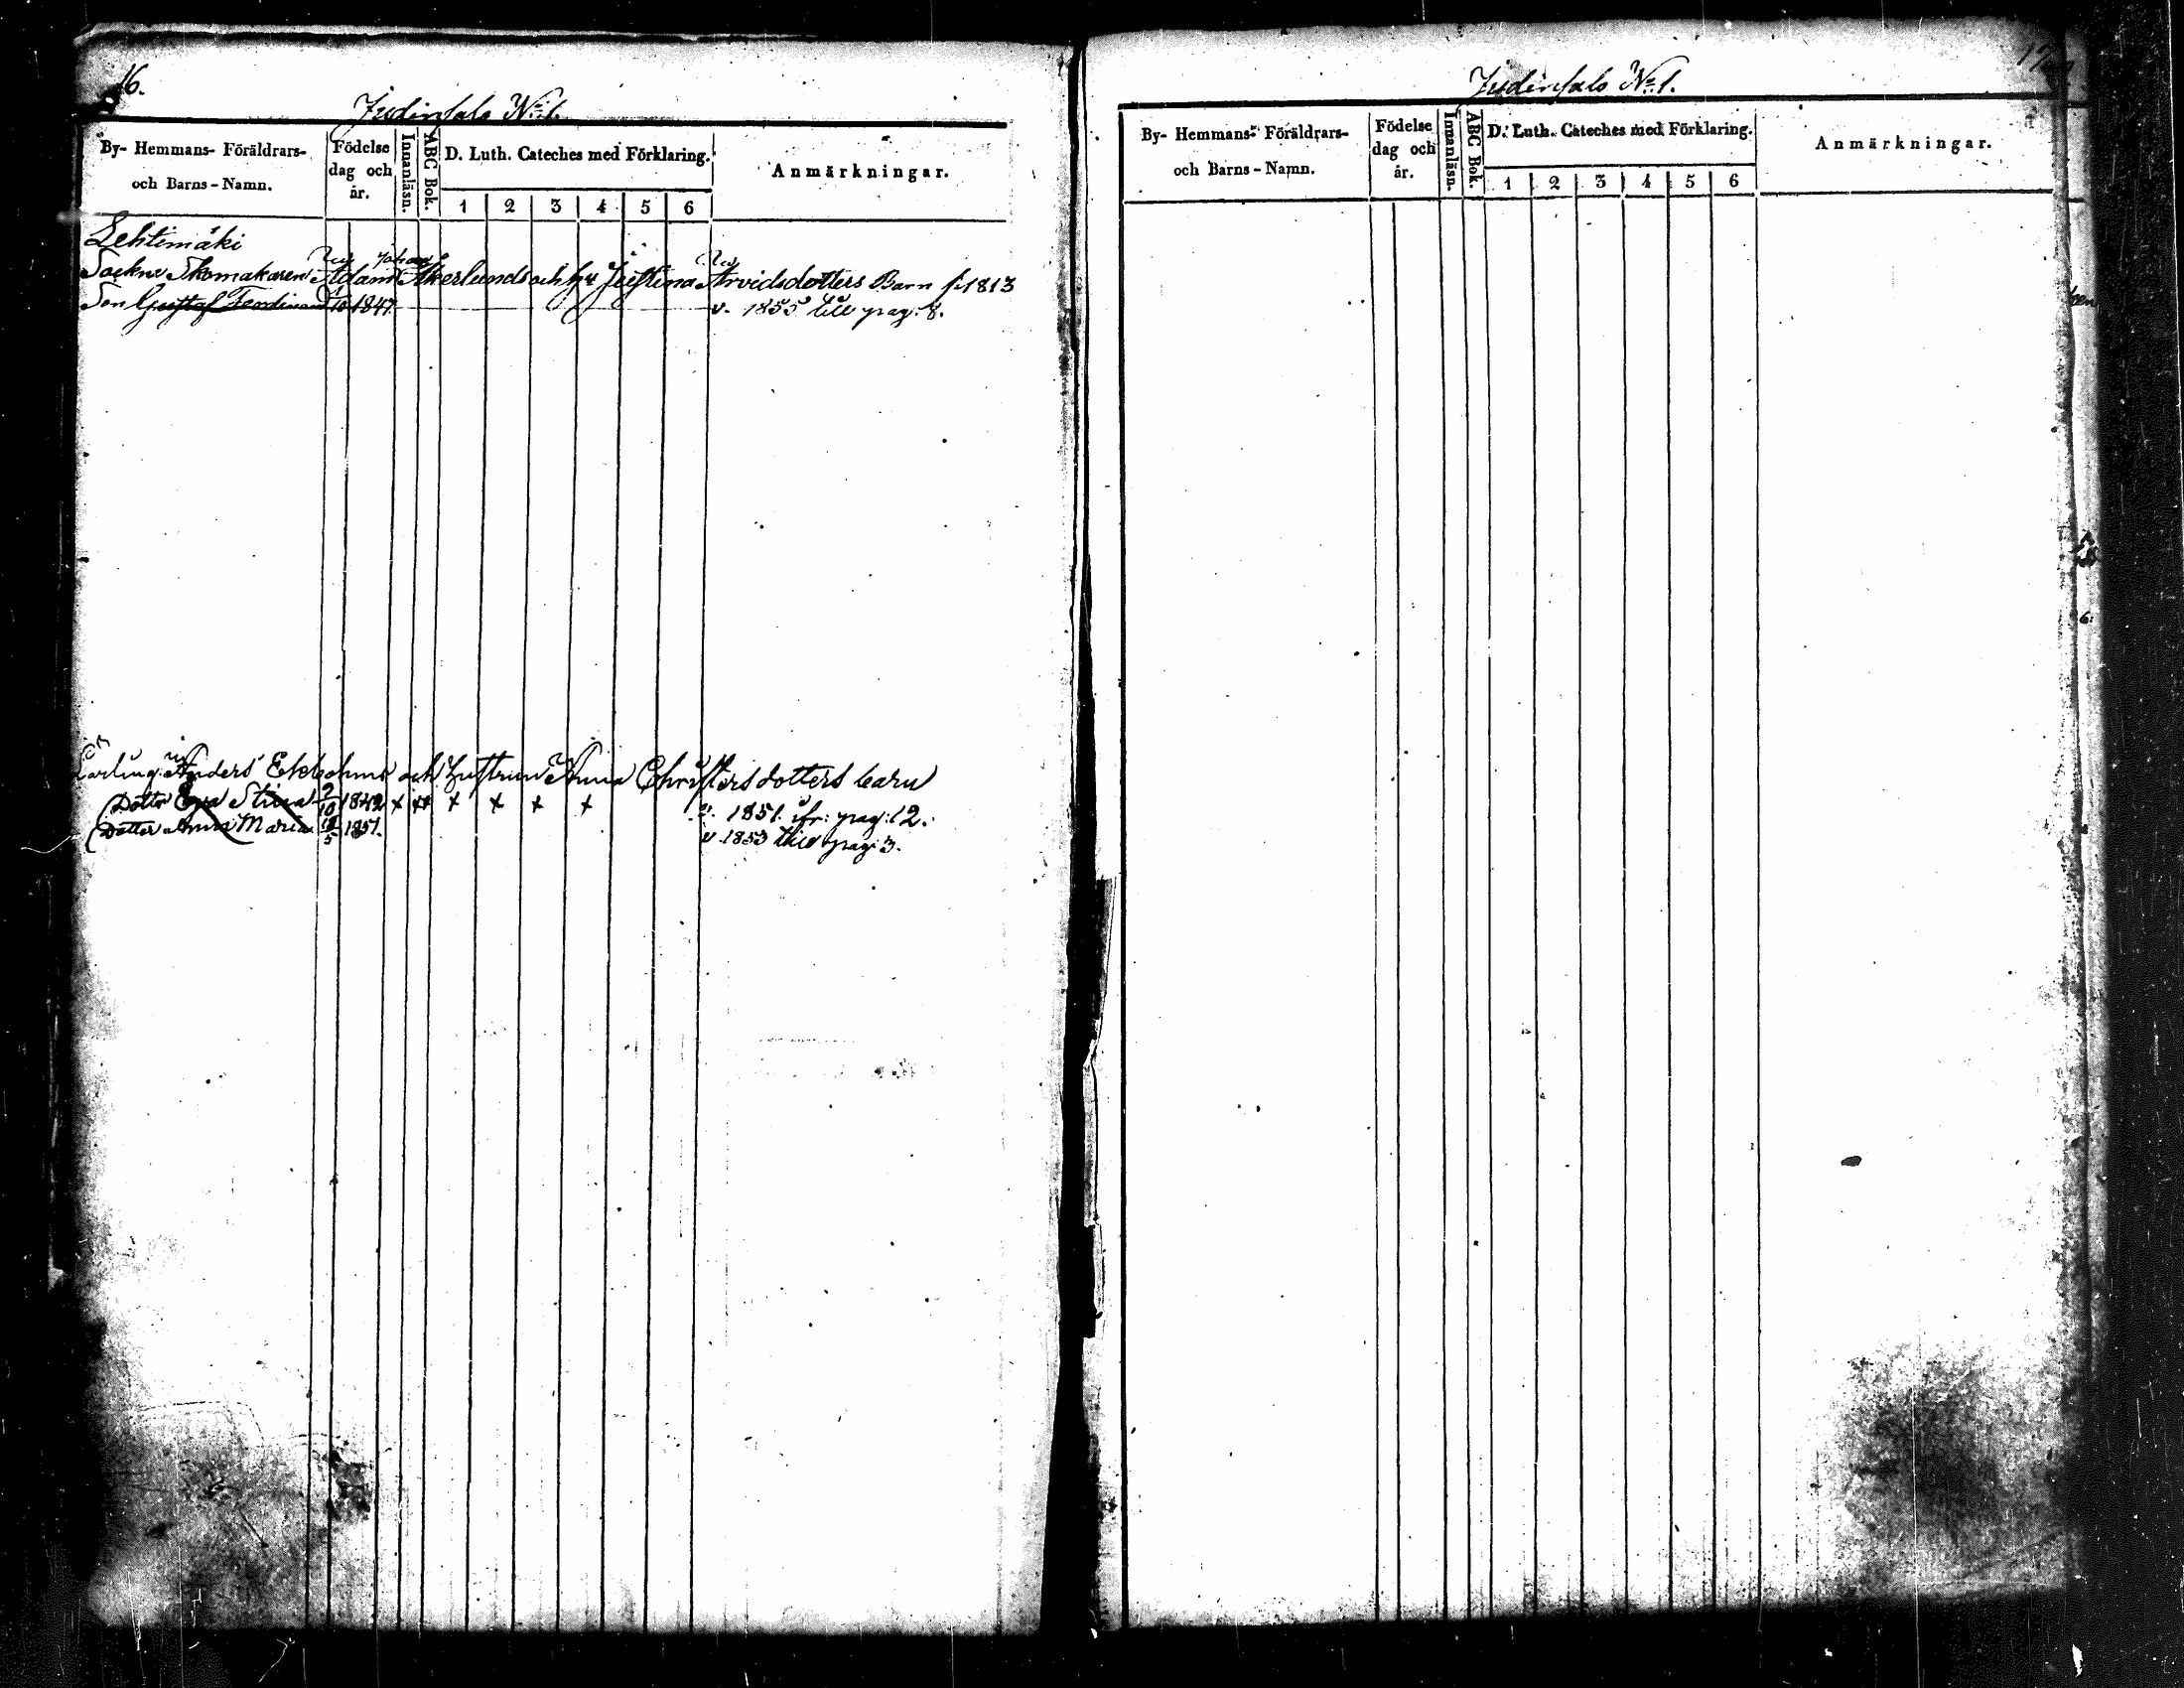 16.
Judinsalo No 1.
By- Hemmans- Föräldrars- och Barns-Namn.
Födelse dag och år.
Innanläsn.
ABC Bok.
D. Luth. Cateches med Förklaring.
1 2 3 4 5 6
Anmärkningar.
Lehtimäki
Johan
Sockne Skomakaren Adam Åkerlunds och hu Justina Arvidsdotters Barn f. 1813
Son Gustaf Ferdinand 1847 v. 1855 till pag. 8.
Anders Ekbohms och hustrun Anna Christersdotters barn
Dotter Eva Stina 2/10 1842 x xx x x x x 1851 ifr: pag: 12.
Dotter Anna Maria 1851. v. 1853 till pag: 3.
17
Judinsalo No 1.
By- Hemmans- Föräldrars- och Barns-Namn.
Födelse dag och år.
Innanläsn.
ABC Bok.
D. Luth. Cateches med Förklaring.
1 2 3 4 5 6
Anmärkningar.
6.